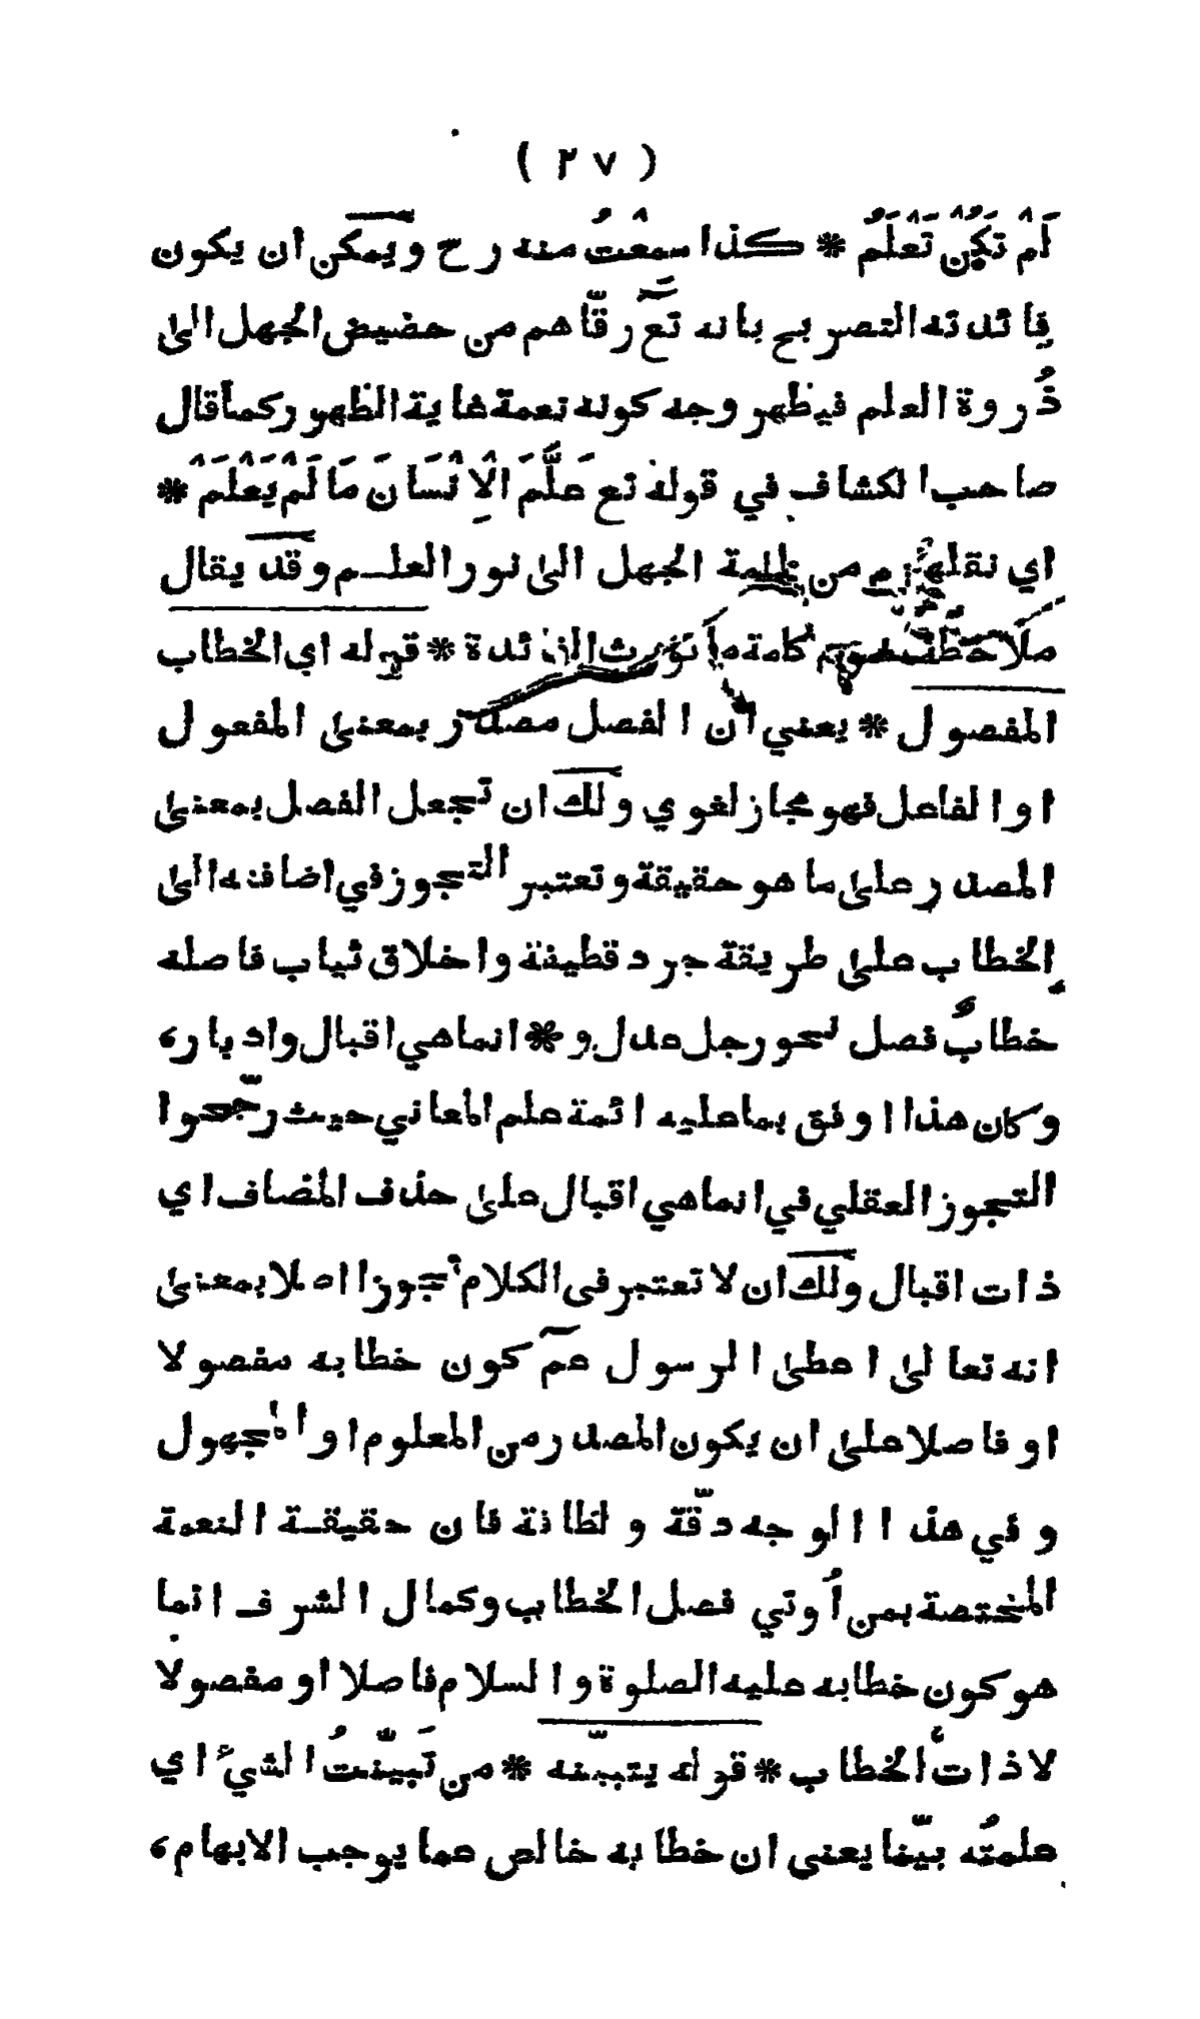 ( ٢٧ )
لَمْ تَكُنْ تَعْلَمُ * كذا سمعْتُ منه رح ويمكن ان يكون
فائدته التصريح بانه تع رقّاهم من حضيض الجهل الى
ذُروة العلم فيظهر وجه كونه نعمة غاية الظهور كما قال
صاحب الكشاف في قوله تع عَلَّمَ الْاِنْسَانَ مَا لَمْ يَعْلَمْ *
اي نقلهم من ظلمة الجهل الى نور العلم وقد يقال
ملاحظة كلمة ما تؤرث الفائدة * قوله اي الخطاب
المفصول * يعني ان الفصل مصدر بمعنى المفعول
او الفاعل فهو مجاز لغوي ولك ان تجعل الفصل بمعنى
المصدر على ما هو حقيقة وتعتبر التجوز في اضافته الى
الخطاب على طريقة جرد قطيفة واخلاق ثياب فاصله
خطابٌ فصل نحو رجل عدل و * انما هي اقبال وادبار،
وكان هذا اوفق بما عليه ائمة علم المعاني حيث رجّحوا
التجوز العقلي في انما هي اقبال على حذف المضاف اي
ذات اقبال ولك ان لا تعتبر فى الكلام تجوزا اصلا بمعنى
انه تعالى اعطى الرسول عم كون خطابه مفصولا
او فاصلا على ان يكون المصدر من المعلوم او المجهول
و في هذا الوجه دقّة و لطافة فان حقيقة النعمة
المختصة بمن اُوتي فصل الخطاب وكمال الشرف انما
هو كون خطابه عليه الصلوة والسلام فاصلا او مفصولا
لا ذات الخطاب * قوله يتبيّنه * من تَبيّنْتُ الشيءَ اي
علمتُه بيّنا يعني ان خطابه خالص عما يوجب الابهام،